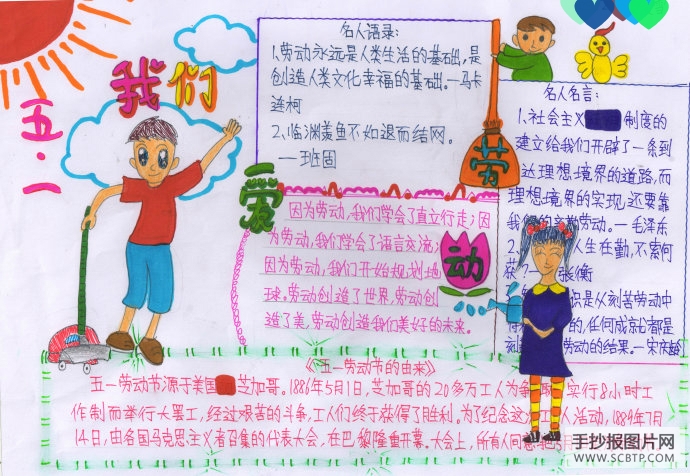 五·一
我们
爱
劳
动
名人语录:
1.劳动永远是人类生活的基础,是
创造人类文化幸福的基础。—马卡
连柯
2、临渊羡鱼不如退而结网。
—班固
因为劳动,我们学会了直立行走;因
为劳动,我们学会了语言交流;
因为劳动,我们开始规划地
球。劳动创造了世界,劳动创
造了美,劳动创造我们美好的未来。
名人名言:
1、社会主义 制度的
建立给我们开辟了一条到
达理想境界的道路,而
理想境界的实现,还要靠
我们的辛勤劳动。—毛泽东
2、 人生在勤,不索何
获? 张衡
识是从刻苦劳动中
得 的,任何成就都是
刻 劳动的结果。—宋庆龄
《五一劳动节的由来》
五一劳动节源于美国 芝加哥。1886年5月1日,芝加哥的20多万工人为争 实行8小时工
作制而举行大罢工,经过艰苦的斗争,工人们终于获得了胜利。为了纪念这次工人活动,1889年7月
14日,由各国马克思主义者召集的代表大会,在巴黎隆重开幕。大会上,所有人同意
手抄报图片网
WWW.SCBTP.COM